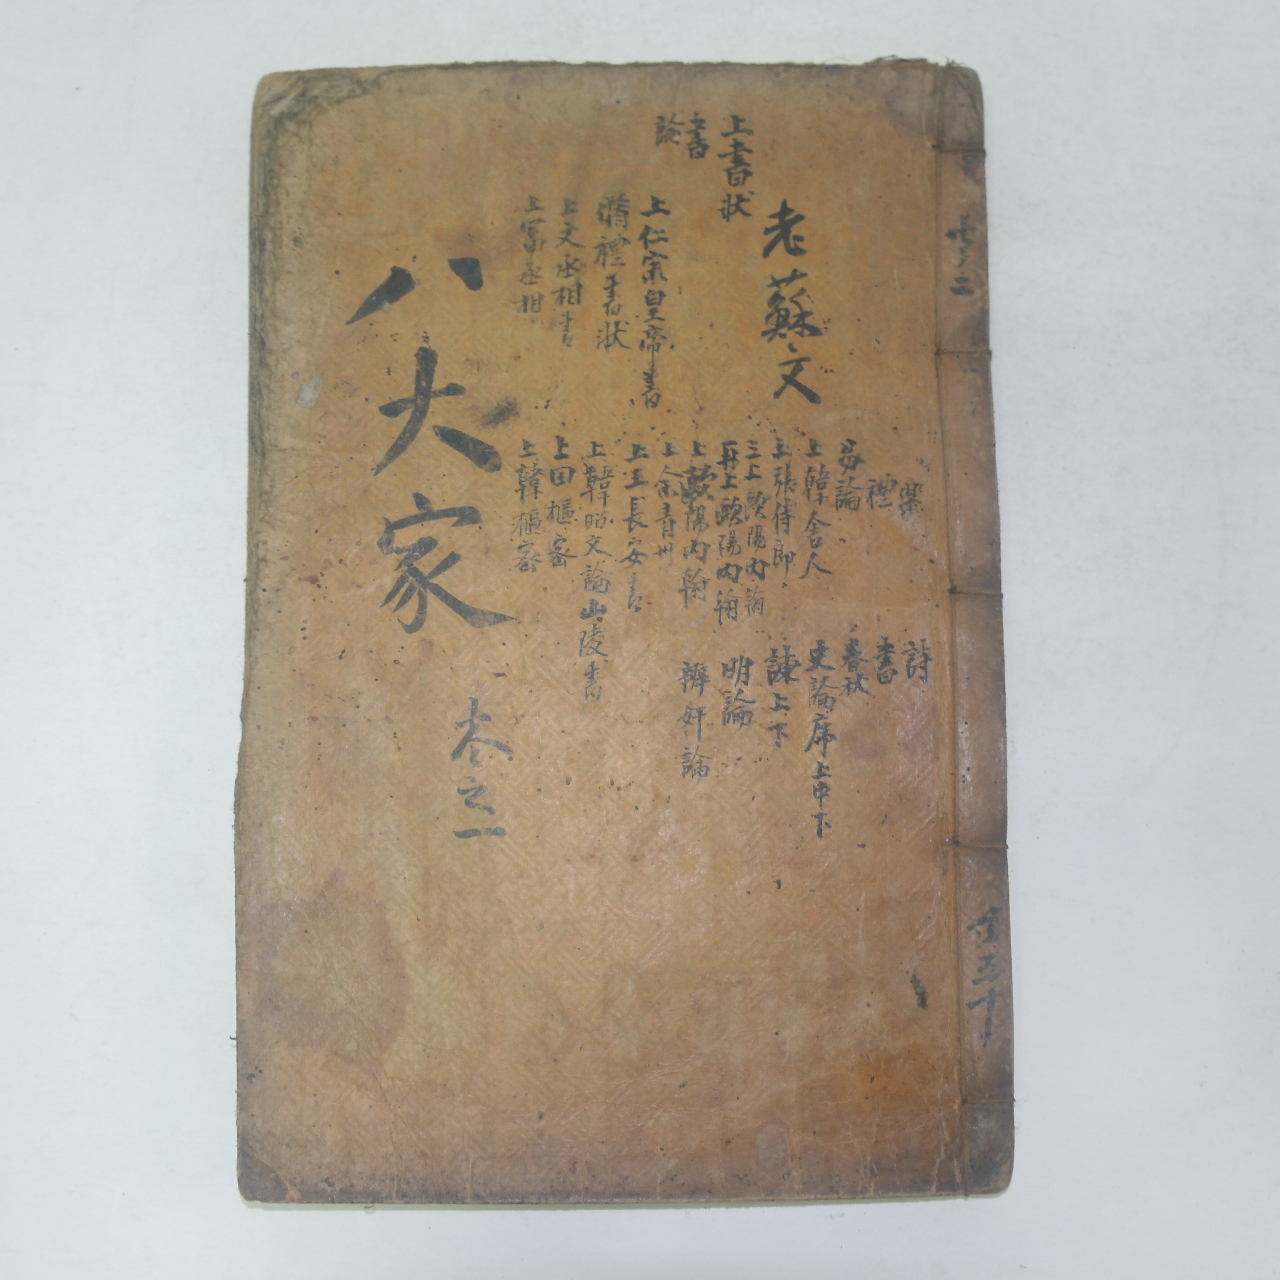 老蘇文
上書狀
書
論
上仁宗皇帝書
脩禮書狀
上文丞相書
上富丞相
樂
禮
易論
上韓舍人
上張侍郎
三上歐陽內翰
再上歐陽內翰
上歐陽內翰
上余青州
上王長安書
上韓昭文論山陵書
上田樞密
上韓樞密
詩
書
春秋
史論序上中下
諫上下
明論
辨奸論
八大家
卷之一
共五十